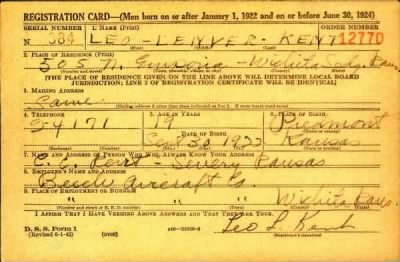 REGISTRATION CARD—(Men born on or after January 1, 1922 and on or before June 30, 1924)
SERIAL NUMBER 1. NAME (Print) ORDER NUMBER
N LEO - LENVER - KENT 12770
(First) (Middle) (Last)
2. PLACE OF RESIDENCE (Print)
505 N. Emporia - Wichita Kans.
[THE PLACE OF RESIDENCE GIVEN ON THE LINE ABOVE WILL DETERMINE LOCAL BOARD
JURISDICTION; LINE 2 OF REGISTRATION CERTIFICATE WILL BE IDENTICAL]
3. MAILING ADDRESS
Same
[Mailing address if other than place indicated on line 2. If same insert word same]
4. TELEPHONE 5. AGE IN YEARS 6. PLACE OF BIRTH
54171 Piedmont
DATE OF BIRTH
Sept 30 1922 Kansas
7. NAME AND ADDRESS OF PERSON WHO WILL ALWAYS KNOW YOUR ADDRESS
Kent Severy Kansas
8. EMPLOYER'S NAME AND ADDRESS
Beech Aircraft Co.
9. PLACE OF EMPLOYMENT OR BUSINESS
Wichita Kans.
(Street and number or R. F. D. number) (Town) (County) (State)
I AFFIRM THAT I HAVE VERIFIED ABOVE ANSWERS AND THAT THEY ARE TRUE.
D. S. S. Form 1
(Revised 6-1-42) (over)
Leo L. Kent
(Registrant's signature)